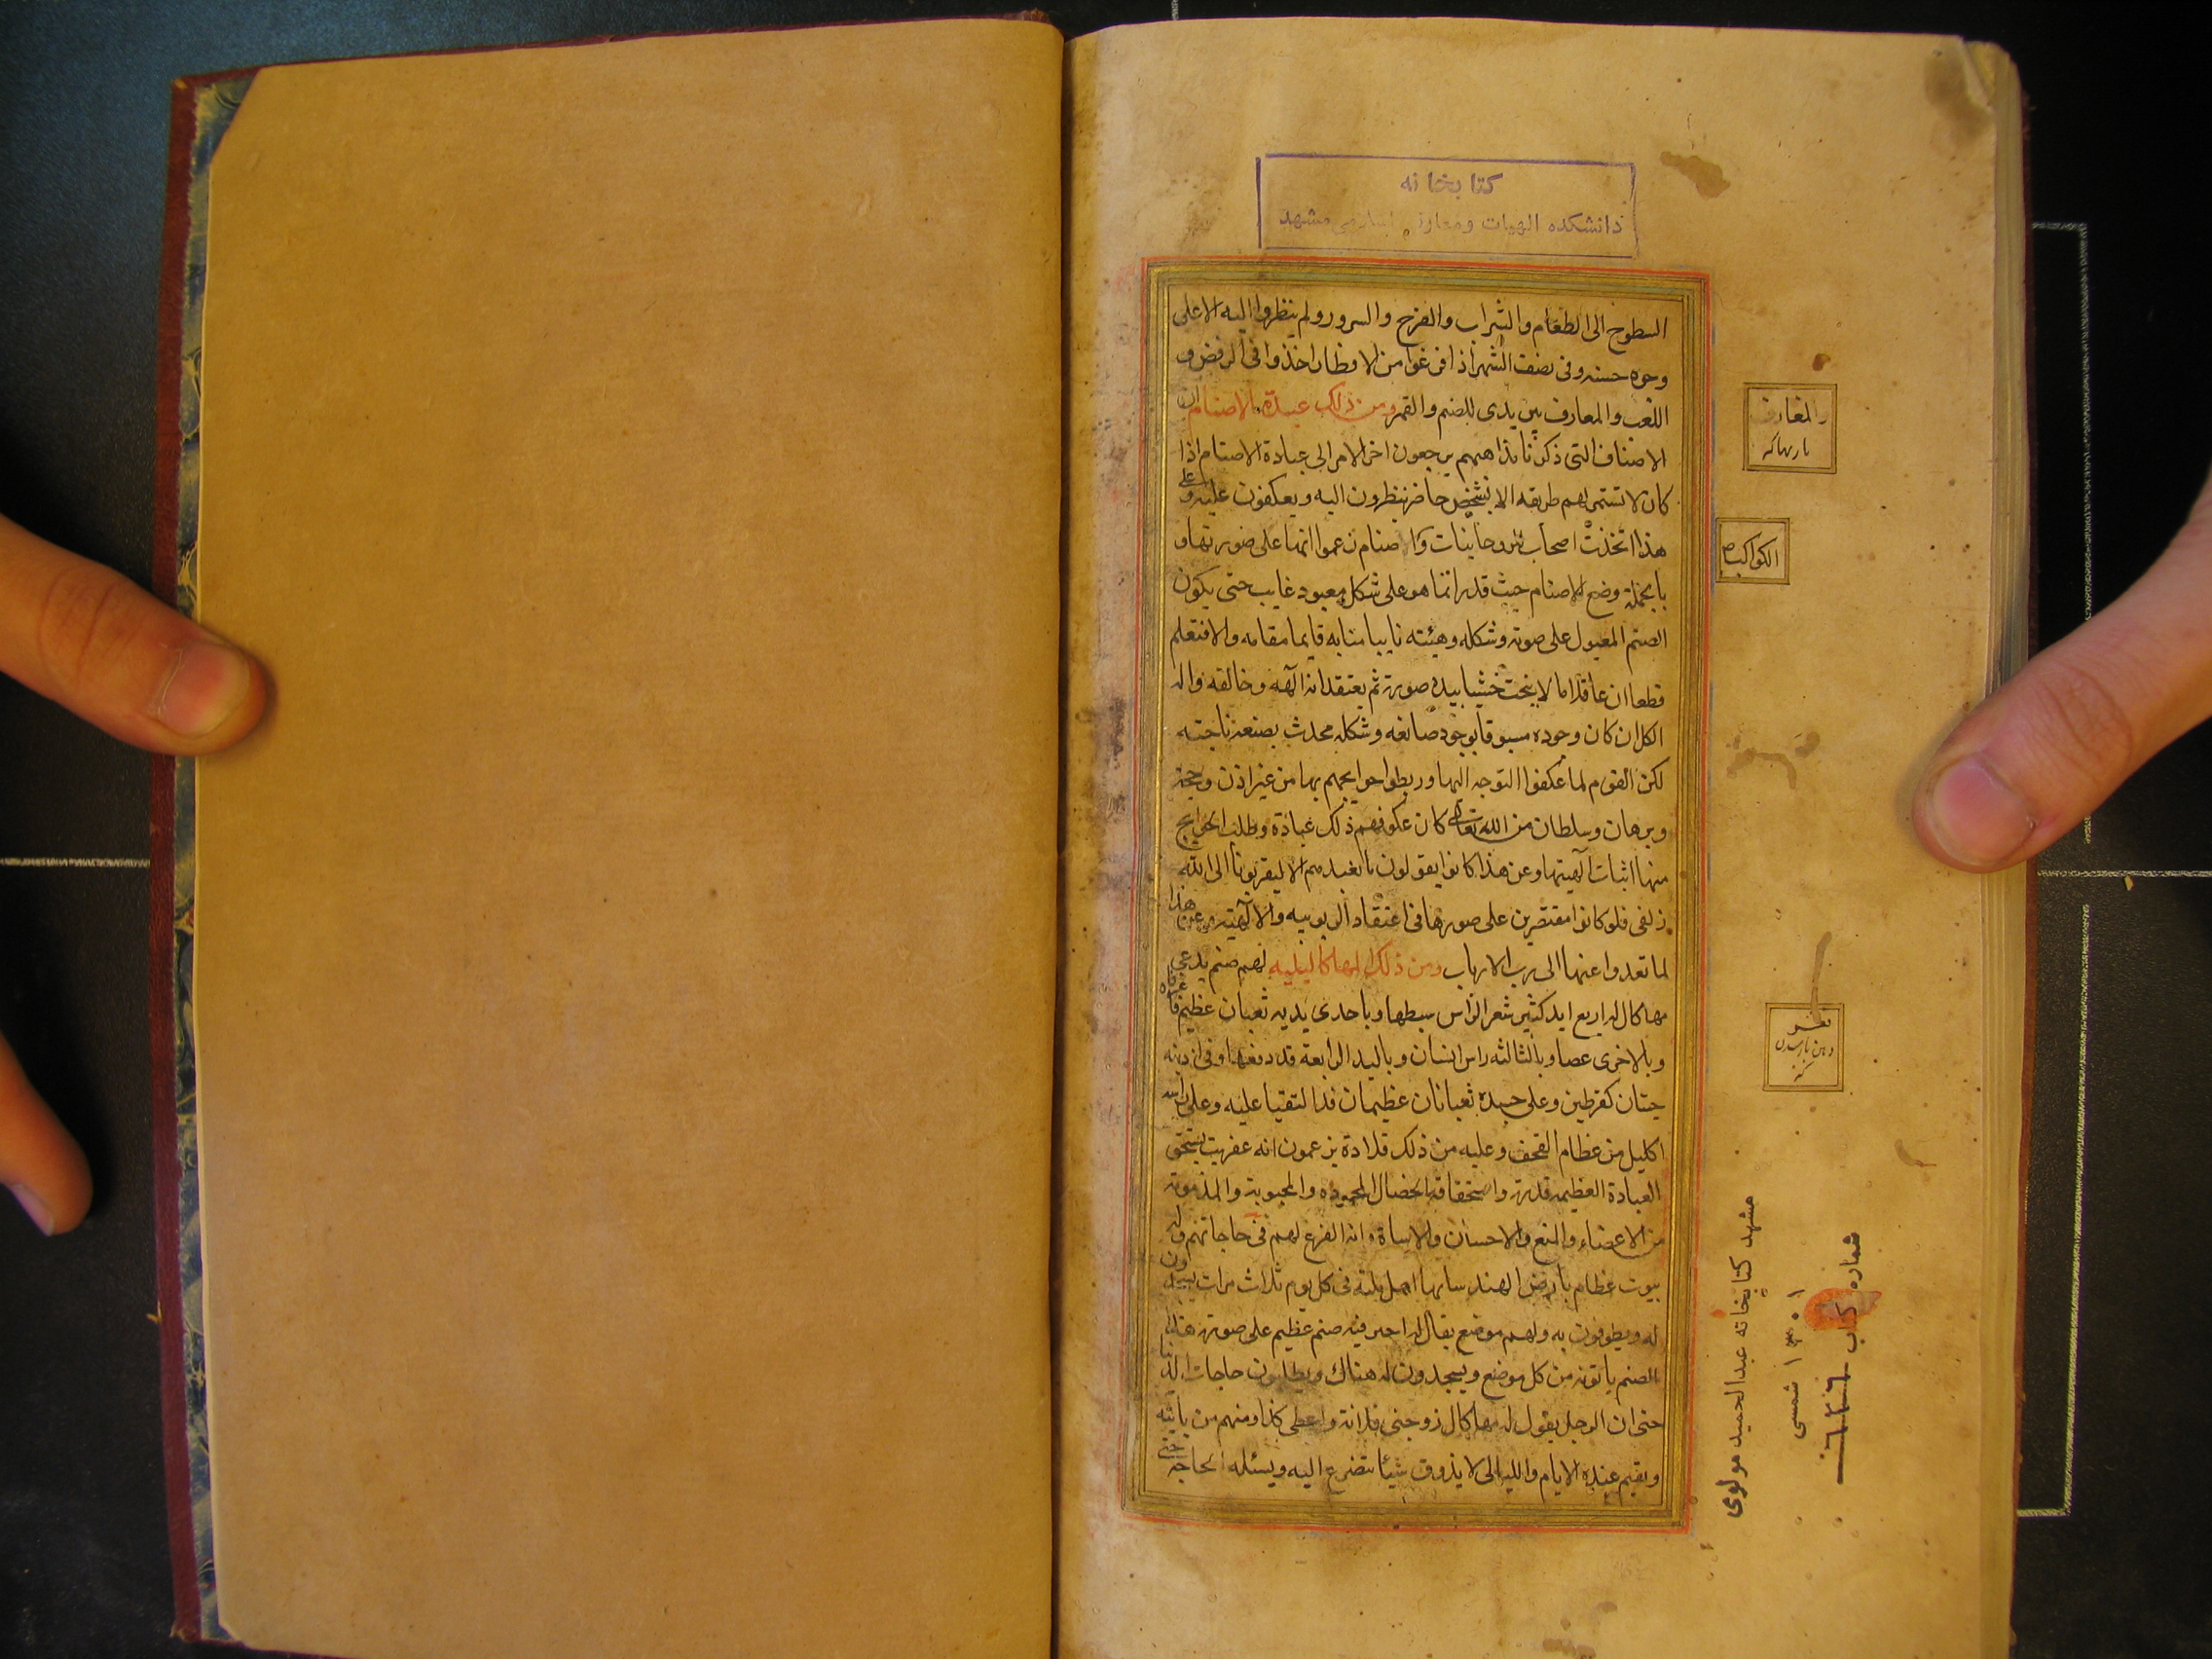 كتابخانه
دانشكده الهيات ومعارف اسلامى مشهد
السطوح الى الطعام والشراب والفرح والسرور ولم ينظروا اليه الا على
وجوه حسنه وفى نصف الشهر اذا فرغوا من الافطار اخذوا فى الرفص و
اللعب والمعازف بين يدى للصنم والقمر ومن ذلك عبدة الاصنام ان
الاصناف التى ذكرنا مذاهبهم يرجعون اخر الامر الى عبادة الاصنام اذا
كان لا تستمر لهم طريقه الا بشخص حاضر ينظرون اليه ويعكفون عليه وعلى
هذا اتخذت اصحاب الروحانيات والاصنام زعموا انها على صورتها و
بالجملة وضع الاصنام حيث قدر انما هو على شكل معبود غايب حتى يكون
الصنم المعبول على صوته وشكله وهيئته نايبا منابه قايما مقامه والا فتعلم
قطعا ان عاقلا ما لا ينحت خشبا بيده صورة ثم يعتقد انه الهه وخالقه واله
الكل ان كان وجوده مسبوقا بوجود صانعه وشكله محدث بصنعة ناحته
لكن القوم لما عكفوا التوجه اليها وربطوا حوايجهم بها من غير اذن وحجة
وبرهان وسلطان من الله تعالى كان عكوفهم ذلك عبادة وطلب الحوايج
منها اثبات آلهيتها وعن هذا كانوا يقولون ما نعبدهم الا ليقربونا الى الله
زلفى فلو كانوا مقتصرين على صورها فى اعتقاد الربوبيه والالهيته وعن هذا
لما تعدوا عنها الى رب الارباب ومن ذلك المهاكاليليه لهم صنم يدعى
مهاكال له اربع ايد كثير شعر الراس سبطها وباحدى يديه ثعبان عظيم فاغرفاه
وبالاخرى عصا وبالثالثه راس انسان وباليد الرابعة قد دفعها وفى اذنيه
حيتان كقرطين وعلى جسده ثعبانان عظيمان قد التقيا عليه وعلى راسه
اكليل من عظام القحف وعليه من ذلك قلادة يزعمون انه عفريت يستحق
العبادة العظيمه قدرته واستحقاقه الخصال المحموده والمحبوبة والمذمومه
من الاعضاء والمنع والاحسان والاساة وانه المفزع لهم فى حاجاتهم وله
بيوت عظام بارض الهند ساتها اهل ملته فى كل يوم ثلاث مرات يسجدون
له ويطوفون به ولهم موضع يقال له اختر فيه صنم عظيم على صورة هذا
الصنم ياتونه من كل موضع ويسجدون له هناك ويطلبون حاجات الدنيا
حتى ان الرجل يقول له مهاكال زوجنى فلانة واعطى كذا ومنهم من ياتيه
ويقيم عنده الايام والليالى لا يذوق شيئا يتضرع اليه ويسئله الحاجه حتى
والمعازف
الكواكب
مشهد كتابخانه عبدالحميد مولوى
۱۳۰۱ شمسى
شماره كتاب ٦٢٦